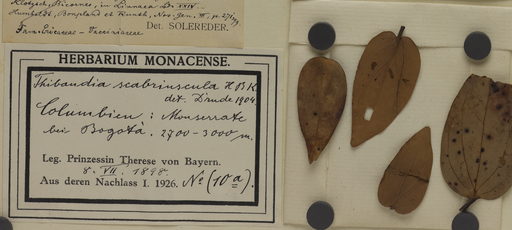 Klotzsch, Bicornes, in Linnaea Bd. XXIV.
Humboldt, Bonpland et Kunth, Nov. Gen. III. p.
Det. SOLEREDER.
Fam. Ericaceae - Vaccinieae
HERBARIUM MONACENSE.
Thibaudia scabriuscula H B K
det. Drude 1904
Columbien: Monserrate
bei Bogotá. 2700-3000 m.
Leg. Prinzessin Therese von Bayern.
8. VII. 1898
Aus deren Nachlass I. 1926. No (10a).